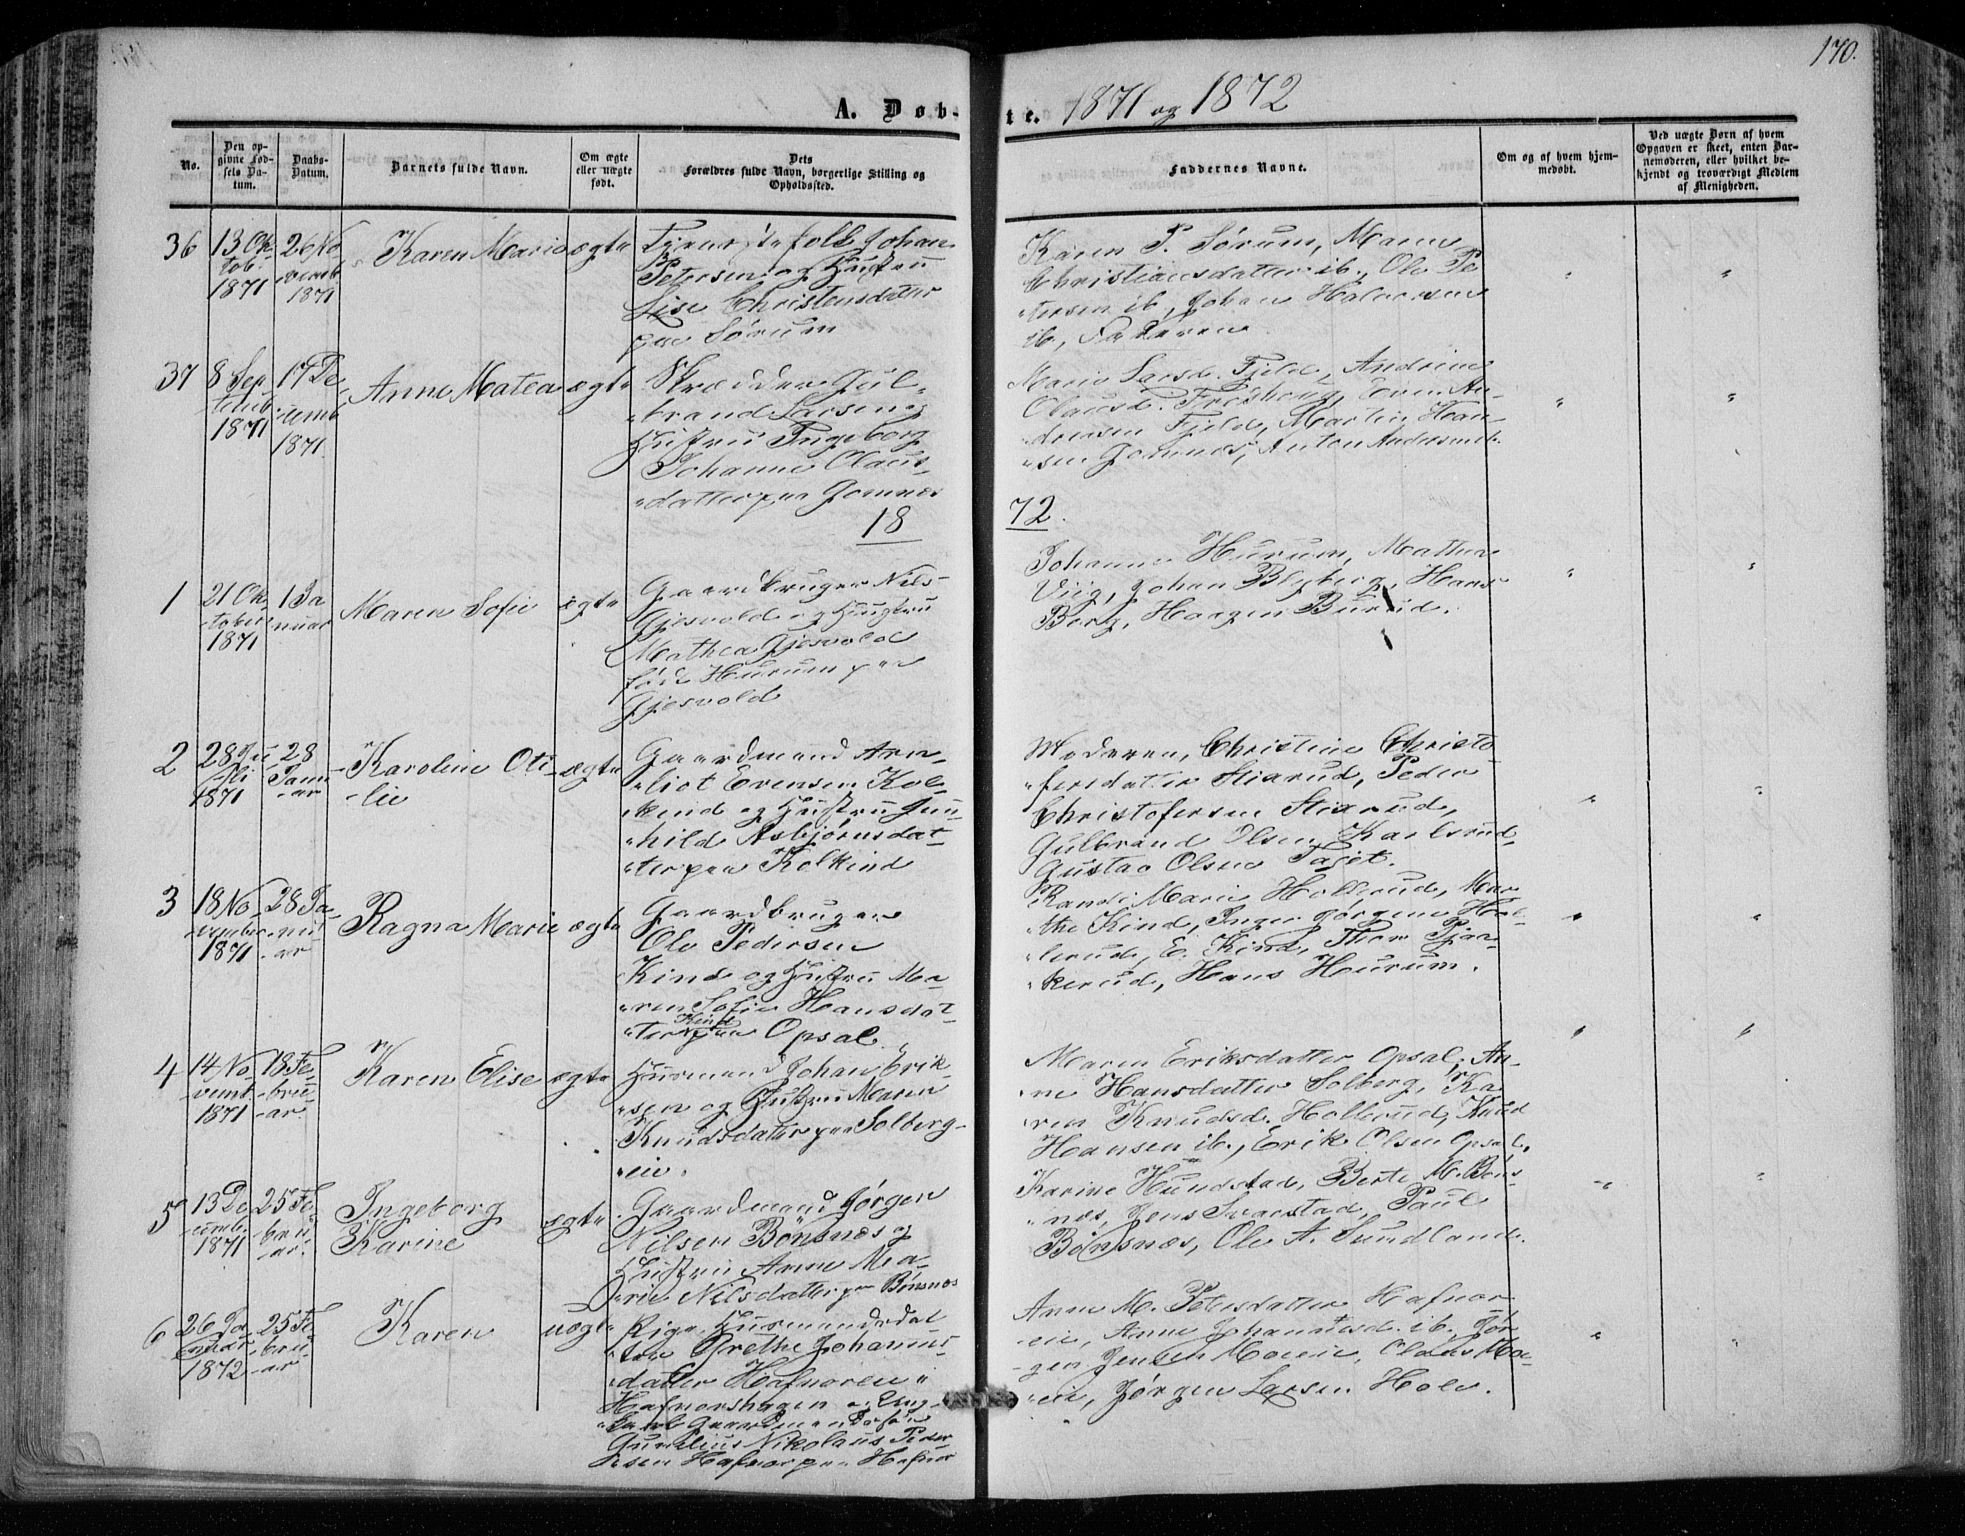 170.
A. Døb-
te. 1871 og 1872
No.
Den op-
givne Fød-
sels Da-
tum.
Daabs-
Datum.
Barnets fulde Navn.
Om ægte
eller uægte
født.
Dets
Forældres fulde Navn, borgerlige Stilling og
Opholdssted.
Faddernes Navne.
Om og af hvem hjem-
medøbt.
Ved uægte Børn af hvem
Opgaven er skeet, enten Bar-
nemoderen, eller hvilket be-
kjendt og troværdigt Medlem
af Menigheden.
36
13 Ok
tob.
1871
26 No
vemb
1871
Karen Marie
ægte
Tjenestefolk Johan
Petersen og Hustru
Lise Christensdatter
paa Sørum
Karen P. Sørum, Maren
Christiansdatter ib., Ole Pe
tersen ib, Johan Halvorsen
ib, Faderen
37
8 Sep
temb
1871
17 De
cemb
1871
Anne Matea
ægte
Skrædder Gul-
brand Larsen og
Hustru Ingeborg
Johanne Olaus-
datter paa Gomnæs
Marie Larsd. Fjeld, Andrine
Olausd. Even An-
dersen Fjeld, Martin Han-
sen Gomnæs, Anton Andersen ib.
18
72.
1
21 Ok
tober
1871
1 Ja
nuar
Maren Sofie
ægte
Gaardbruger Nils
Gjesvold og Hustru
Mathea Gjesvold
født Hurum paa
Gjesvold
Johanne Hurum, Mathea
Viig, Johan Blyberg, Hans
Berg, Haagen Burud.
2
28 Ju
li
1871
28
Janu
ar
Karoline Oti-
lie
ægte
Gaardmand Arn-
liot Evensen Kol-
kind og Hustru Gun
hild Asbjørnsdat-
ter paa Kolkind
Moderen, Christine Christo
fersdatter Stiarud, Peder
Christofersen Stiarud,
Gulbrand Olsen Karlsrud
Gustav Olsen
3
18 No
vember
1871
28 Ja
nu
ar
Ragna Marie
ægte
Gaardbruger
Ole Pedersen
Kind og Hustru Ma-
ren Sofie Hansdat
ter Kind paa Opsal
Randi Marie Hollerud, Mar
the Kind, Inger Jørgine Hol
lerud, E. Kind, Thor Bjør
kerud, Hans Hurum.
4
14 No
vemb
1871
18 Fe
bru
ar
Karen Elise
ægte
Husmand Johan Erik-
sen og Hustru Maren
Knudsdatter paa Solberg-
eie.
Maren Eriksdatter Opsal, An-
ne Hansdatter Solberg, Ka
ren Knudsd. Hollerud, Knud
Hansen ib., Erik Olsen Opsal.
5
13 De
cemb.
1871
25 Fe
bru
ar.
Ingeborg
Karine
ægte
Gaardmand Jørgen
Nilsen Bønsnæs og
Hustru Anne Ma-
rie Nilsdatter paa Bønsnæs
Karine Hundstad, Berte M. Bøns-
næs, Jens Svarstad, Paul
Bønsnæs, Ole A. Sundland.
6
26 Ja
nuar
1872
25 Fe
bru
ar
Karen
uægte
Pige, Husmandsdat
ter Grethe Johannes
datter Hafnoreie
Hafnorshagen og Ung-
karl Gaardmandssøn
Aurelius Nikolaus Peder
sen Hafnor paa Hafnor
Anne M. Petersdatter Hafnor
eie, Anne Johannesd. ib., Jør
gen Jensen Moeie, Olaus Mo-
eie, Jørgen Larsen Hole.